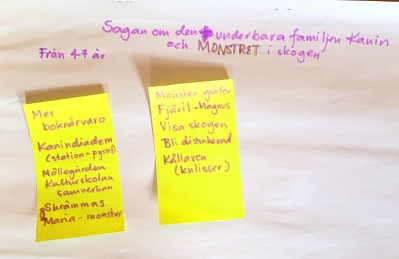 Sagan om den underbara familjen Kanin
och MONSTRET i skogen
Från 4-7 år
Mer
boknärvaro
Kanindiadem
(station-pyssel)
Möllegården
Kulturskolan
samverkan
Skrämmas
Maria - monster
Monster gråter
Fjäril - Magnus
Visa skogen
Bli distraherad
Källaren
(kulisser)